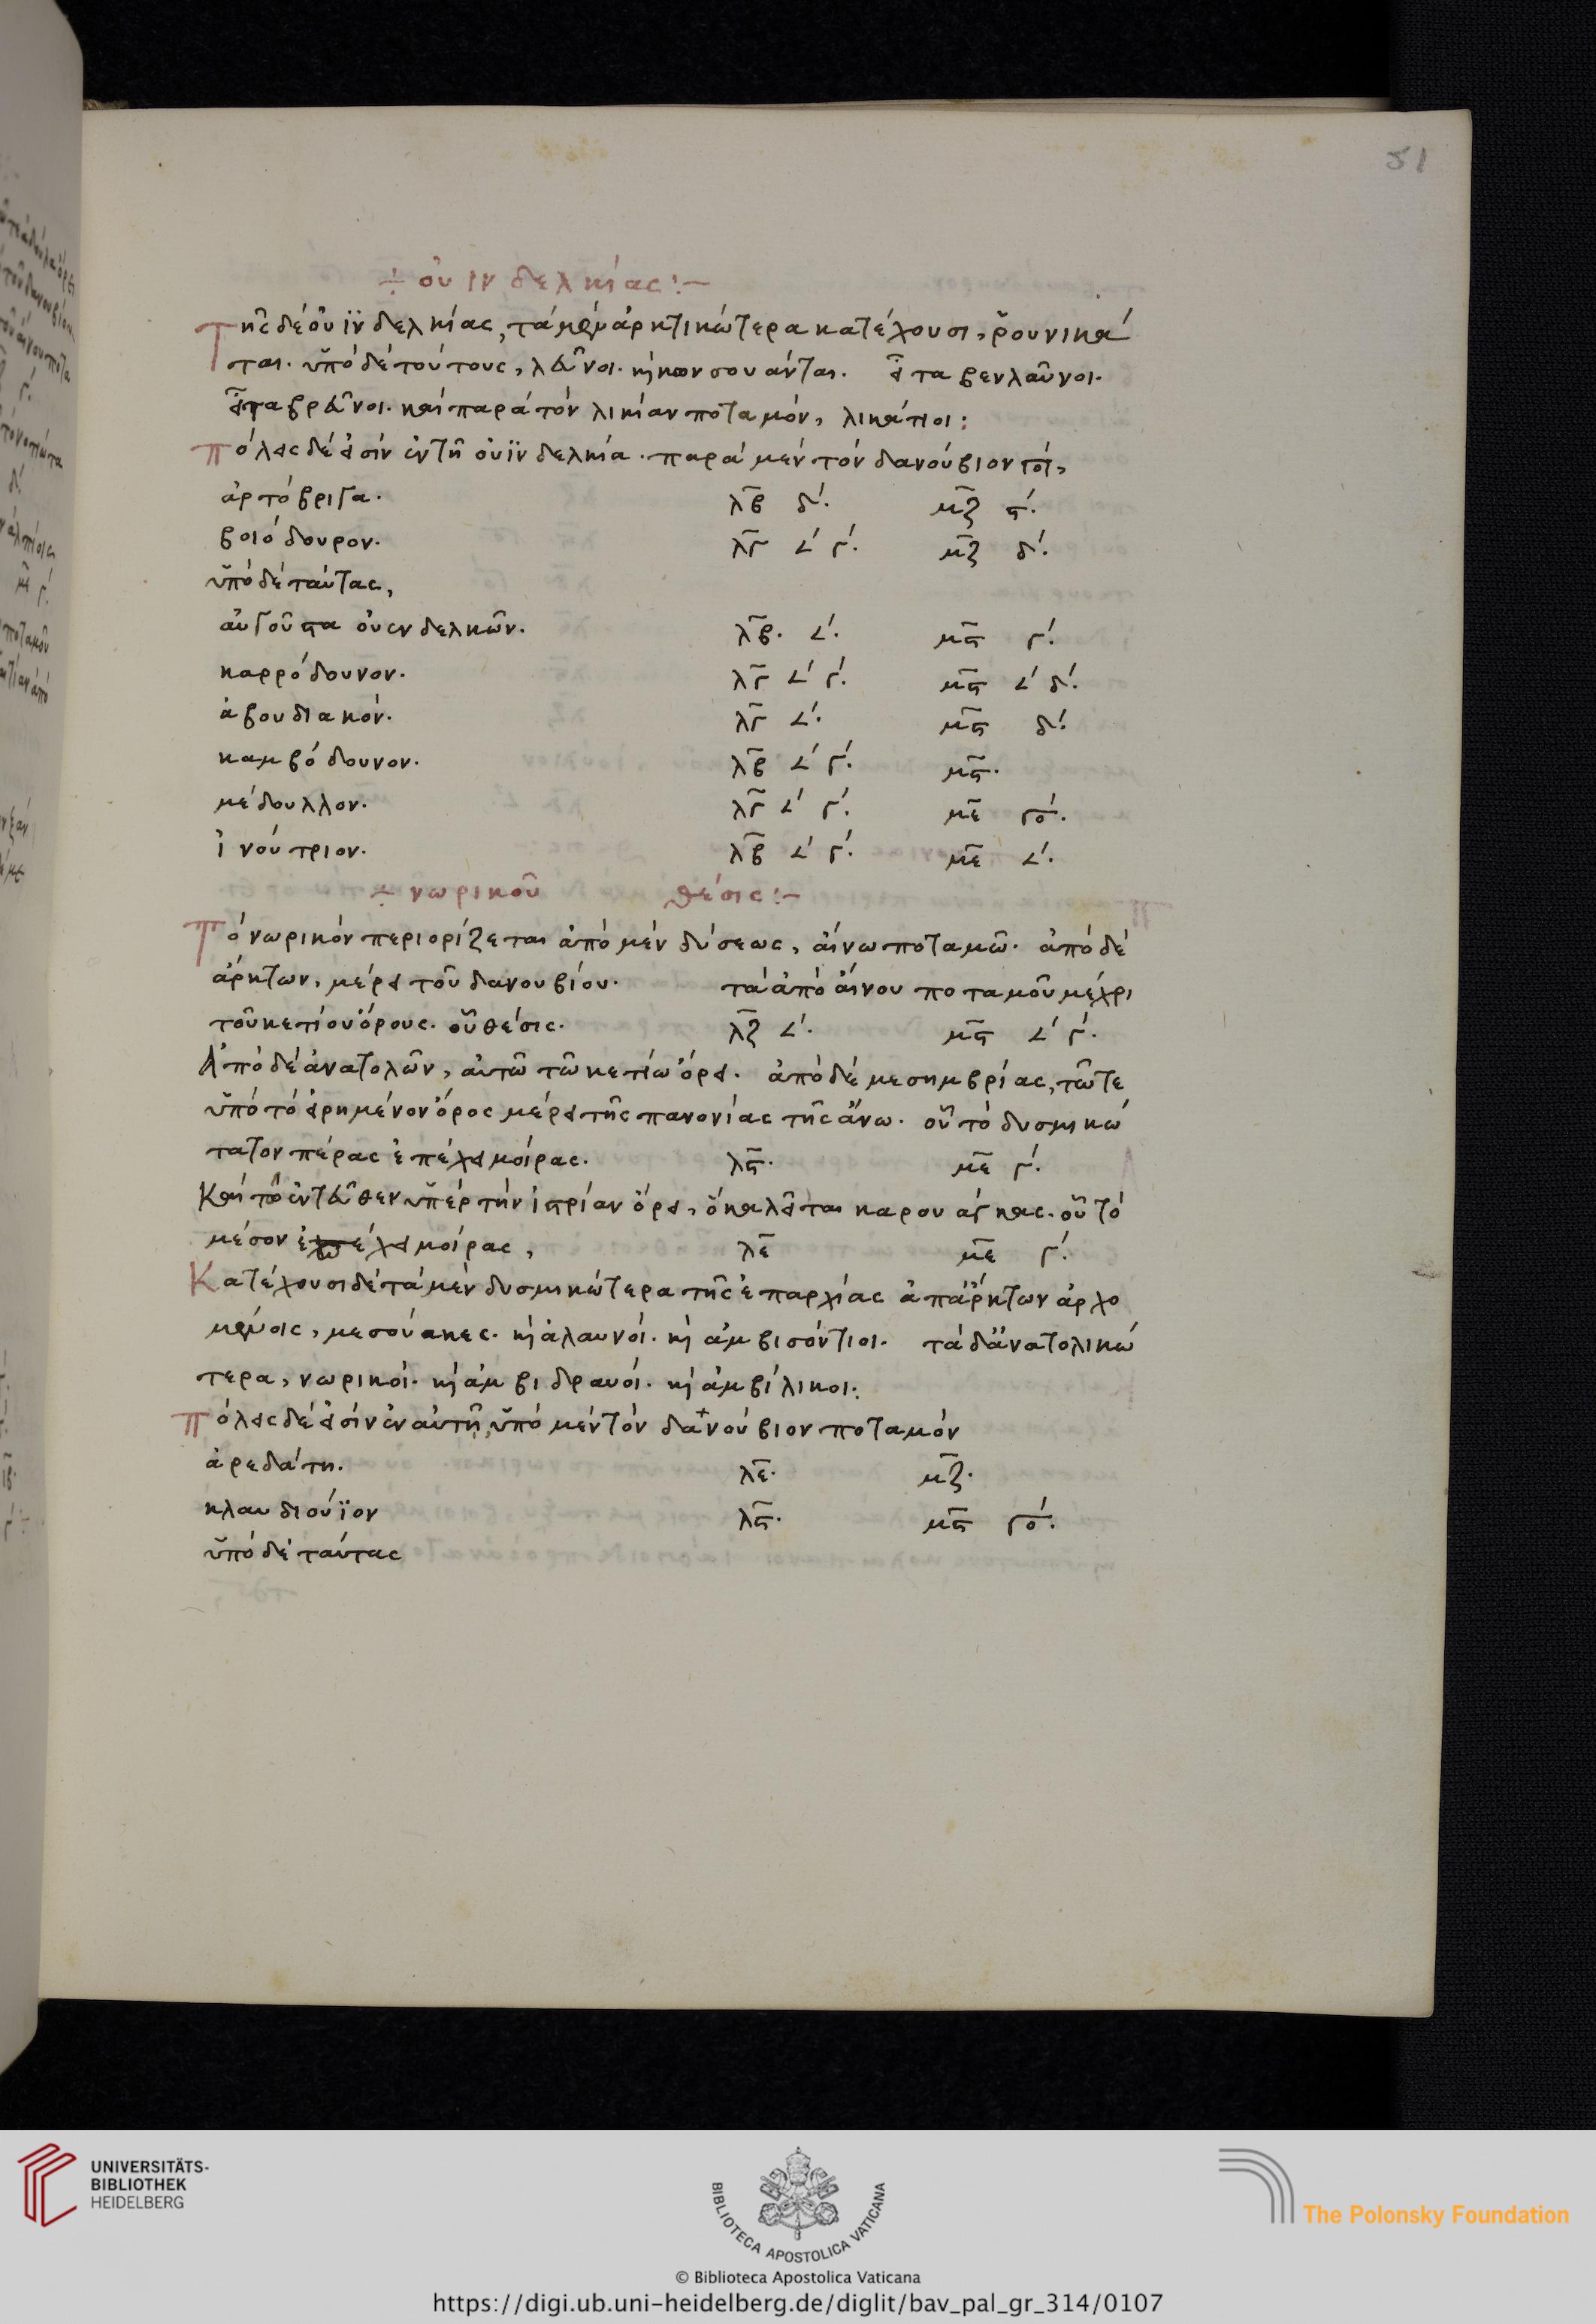 51
÷ οὐινδελκίας:–
Τῆς δὲ οὐϊνδελκίας, τὰ μὲν ἀρκτικώτερα κατέχουσι, ῥουνικά
ται. ὑπὸ δὲ τούτους, λεῦνοι. καὶ κωνσουάνται. εἶτα βενλαῦνοι.
εἶτα βρεῦνοι. καὶ παρὰ τὸν λικίαν ποταμὸν, λικάτιοι:
Πόλεις δέ εἰσιν ἐν τῇ οὐϊνδελκία. παρὰ μὲν τὸν δανούβιον
ἀρτόβριγα. λβ δ'. μζ ϛ'.
βοιόδουρον. λγ 𐅵' γ'. μζ δ'.
ὑπὸ δὲ ταύτας,
αὐγοῦϛα οὐενδελκῶν. λβ. 𐅵'. μϛ γ'.
καρρόδουνον. λγ 𐅵' γ'. μϛ 𐅵' δ'.
ἀβουδιακόν. λγ 𐅵'. μϛ δ'.
καμβόδουνον. λβ 𐅵' γ'. μϛ.
μέδουλλον. λγ 𐅵' γ'. με γο'.
ἰνούτριον. λβ 𐅵' γ'. με 𐅵'.
÷ νωρικοῦ θέσις:–
Τὸ νωρικὸν περιορίζεται ἀπὸ μὲν δύσεως, αἴνω ποταμῶ. ἀπὸ δὲ
ἄρκτων, μέρει τοῦ δανουβίου. τὰ ἀπὸ αἴνου ποταμοῦ μέχρι
τοῦ κετίου ὄρους. οὗ θέσις. λζ 𐅵'. μϛ 𐅵' γ'.
Ἀπὸ δὲ ἀνατολῶν, αὐτῶ τῶ κετίω ὄρει. ἀπὸ δὲ μεσημβρίας, τῶ τε
ὑπὸ τὸ εἰρημένον ὄρος μέρει τῆς πανονίας τῆς ἄνω. οὗ τὸ δυσμικώ
τατον πέρας ἐπέχει μοίρας. λϛ. με γ'.
Καὶ τῶ ἐντεῦθεν ὑπὲρ τὴν ἰϛρίαν ὄρει, ὃ καλεῖται καρουάγκας. οὗ τὸ
μέσον ἐπέχει μοίρας, λε με γ'.
Κατέχουσι δὲ τὰ μὲν δυσμικώτερα τῆς ἐπαρχίας ἀπ' ἄρκτων ἀρχο
μένοις, μεσούακες. καὶ ἀλαυνοί. καὶ ἀμβισόντιοι. τὰ δ' ἀνατολικώ
τερα, νωρικοί. καὶ ἀμβιδραυοί. καὶ ἀμβίλικοι:
Πόλεις δέ εἰσιν ἐν αὐτῇ, ὑπὸ μὲν τὸν δανούβιον ποταμόν
ἀρεδάτη. λε. μζ.
κλαυδιούϊον λϛ. μϛ γο'.
ὑπὸ δὲ ταύτας
UNIVERSITÄTS-
BIBLIOTHEK
HEIDELBERG
BIBLIOTECA APOSTOLICA VATICANA
The Polonsky Foundation
© Biblioteca Apostolica Vaticana
https://digi.ub.uni-heidelberg.de/diglit/bav_pal_gr_314/0107